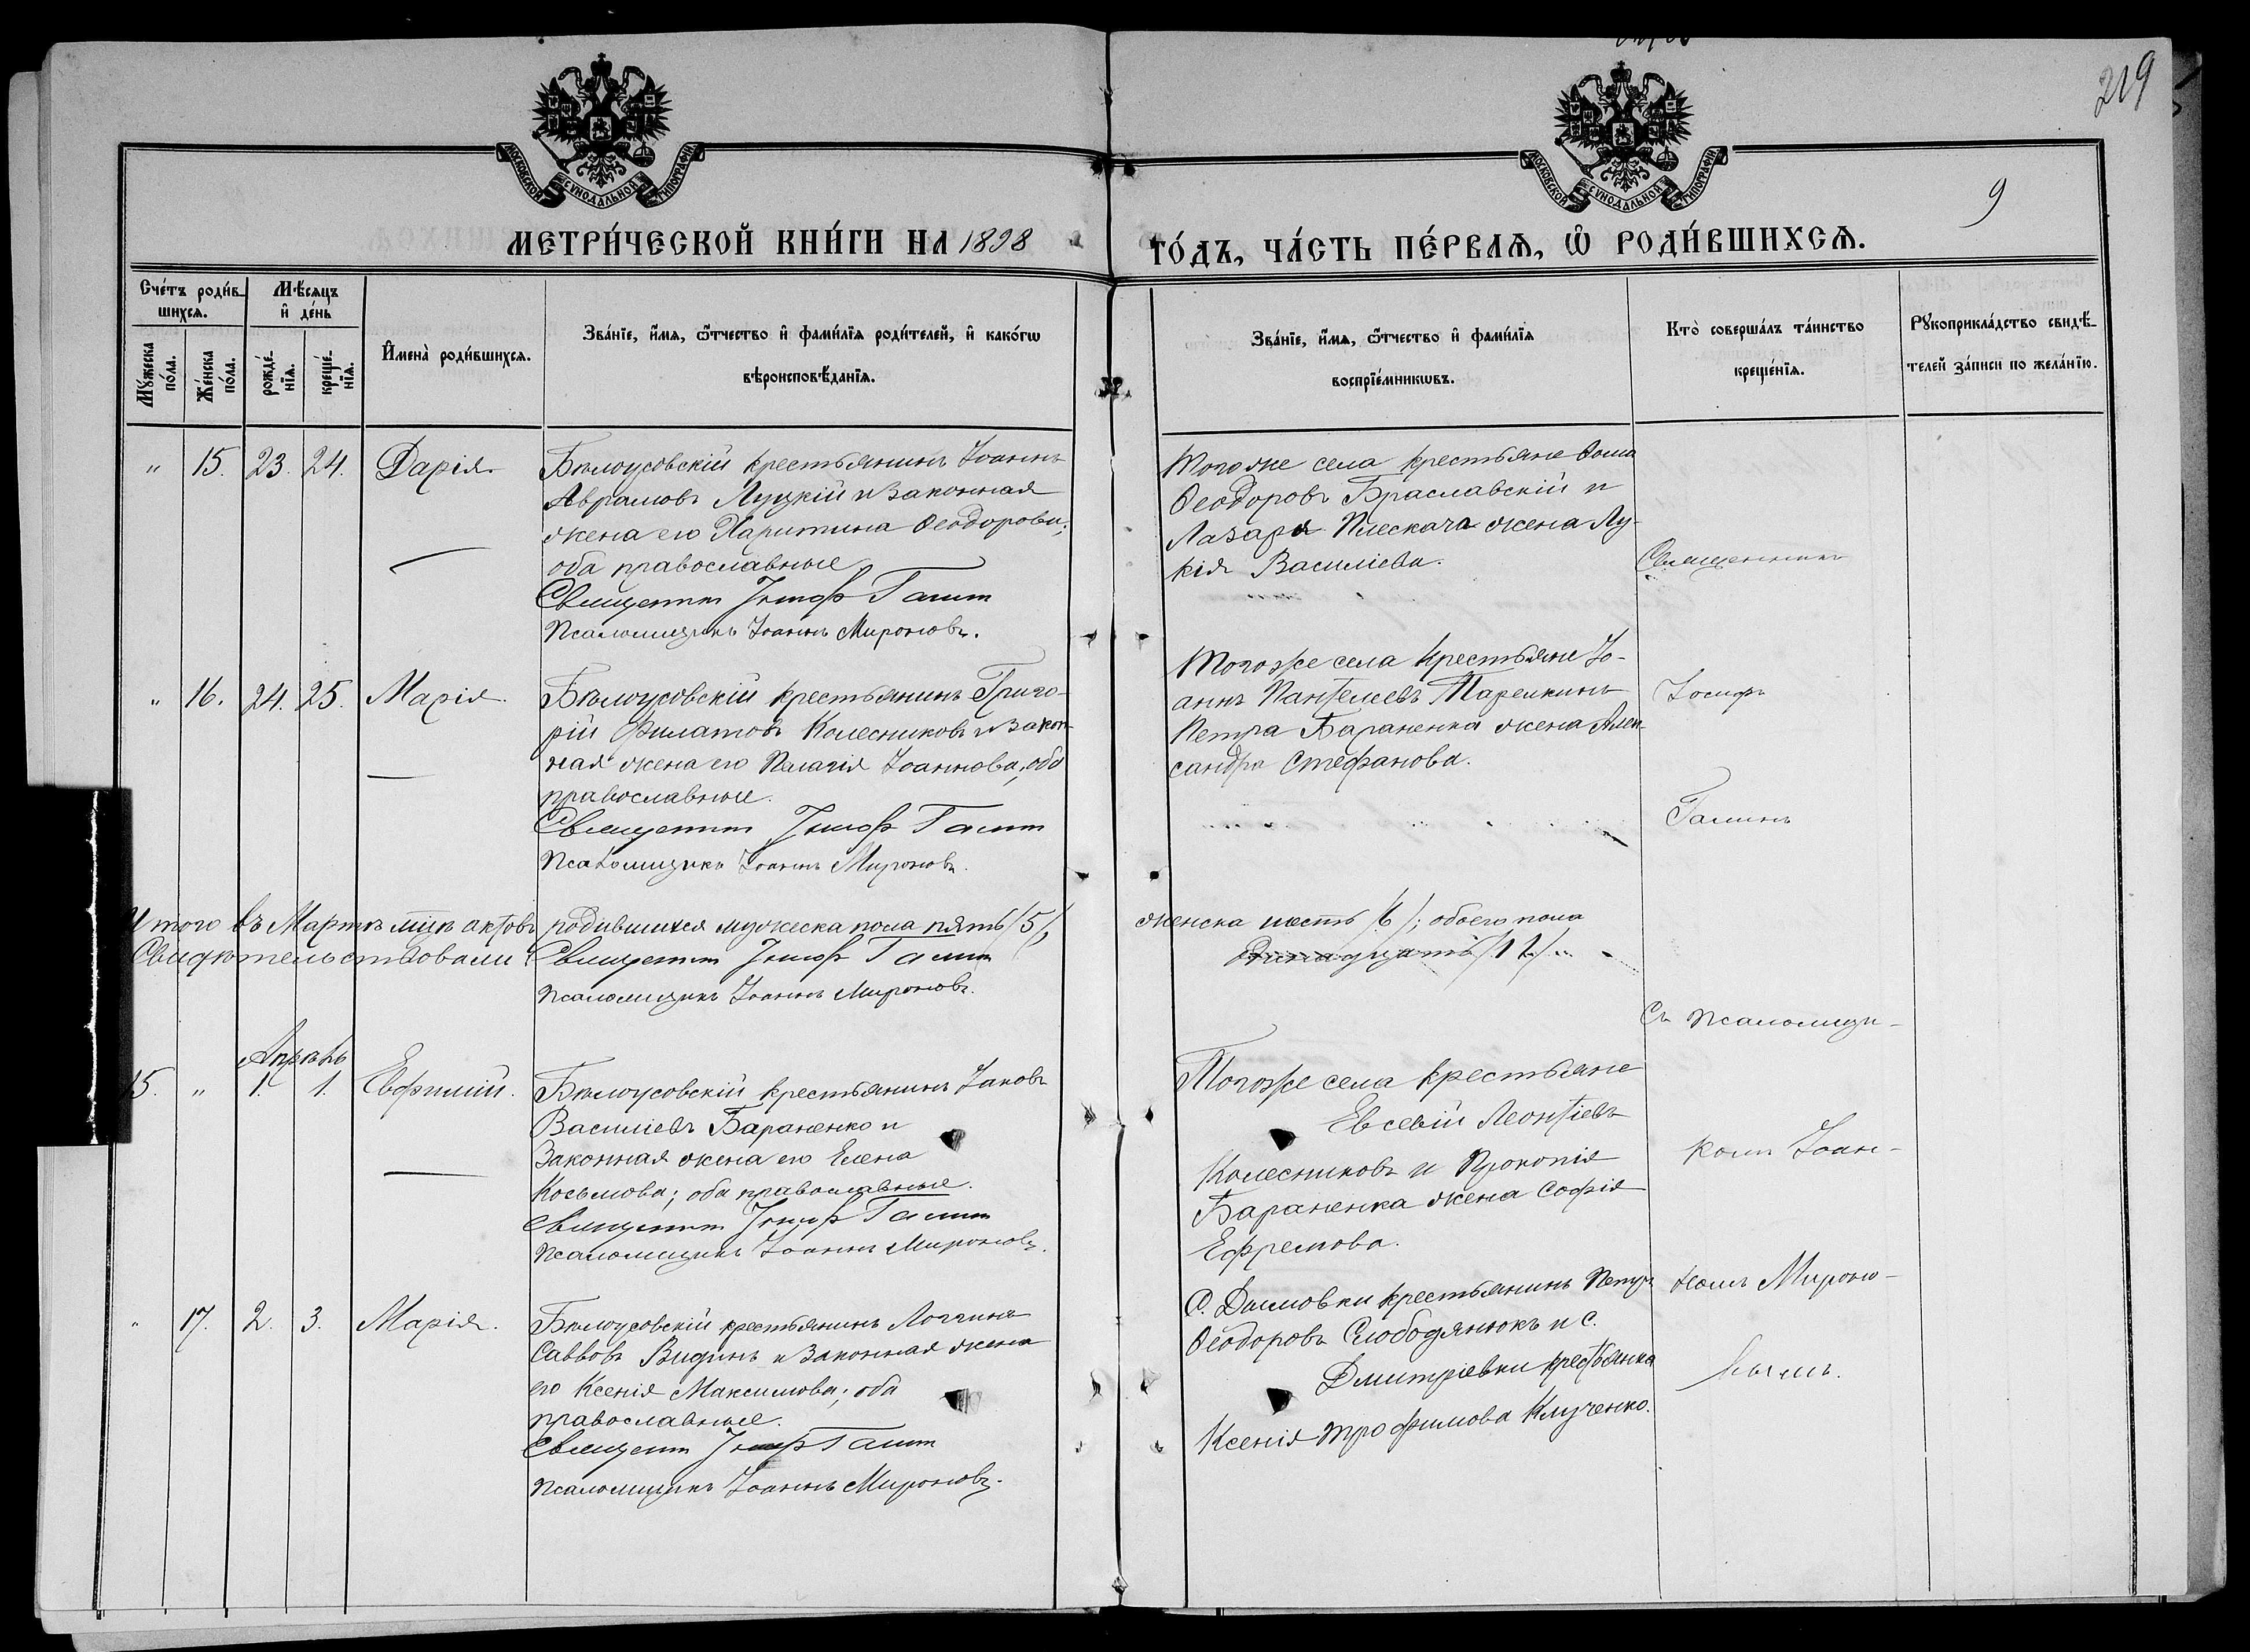 219
9
МОСКОВСКОЙ СѴНОДАЛЬНОЙ ТИПОГРАФІИ
МОСКОВСКОЙ СѴНОДАЛЬНОЙ ТИПОГРАФІИ
МЕТРИ́ЧЕСКОЙ КНИ́ГИ НА 1898
ГО́ДЪ, ЧА́СТЬ ПЕ́РВАѦ, Ѡ҆ РОДИ́ВШИХСѦ.
Сче́тъ роди́в-
шихсѧ.
Мꙋ́жеска по́ла.
Же́нска по́ла.
Мѣ́сѧцъ
и҆ де́нь
рожде́-нїѧ.
креще́-нїѧ.
И҆мена̀ роди́вшихсѧ.
Зва́нїе, и҆́мѧ, ѻ҆́тчество и҆ фами́лїѧ роди́телей, и҆ како́гѡ
вѣроисповѣ́данїѧ.
Зва́нїе, и҆́мѧ, ѻ҆́тчество и҆ фами́лїѧ
воспрїе́мникѡвъ.
Кто̀ соверша́лъ та́инство
креще́нїѧ.
Рꙋкоприкла́дство свидѣ́-
телей за́писи по жела́нїю.
" 15. 23. 24. Дарія
Бѣлоусовскій крестьянинъ Іоаннъ
Аврамовъ Луцкій и законная
жена его Харитина Ѳеодорова;
оба православные
Священникъ Іосифъ Галин
Псаломщикъ Іоаннъ Миронов.
Тогоже села крестьяне Ѳома
Ѳеодоровъ Браславскій и
Лазаря Плескача жена Лу-
кія Василіева.
Священникъ
" 16. 24. 25. Марія.
Бѣлоусовскій крестьянинъ Григо-
рій Филатовъ Колесниковъ и закон-
ная жена его Пелагія Іоаннова, оба
православные.
Священникъ Іосифъ Галин
Псаломщикъ Іоаннъ Миронов.
Тогоже села крестьяне Іо-
аннъ Пантелеевъ
Петра Бараненка жена Алек-
сандра Стефанова.
Іосифъ
Галинъ
Итого въ Мартѣ м-цѣ актовъ родившихся мужеска пола пять /5/,
женска шесть /6/; обоего пола
одинадцать /11/.
Свидѣтельствовали: Священникъ Іосифъ Галин
Псаломщикъ Іоаннъ Миронов.
Съ псаломщи-
Апрѣль
15. " 1. 1. Евфимій.
Бѣлоусовскій крестьянинъ Іаковъ
Василіевъ Бараненко и
законная жена его Елена
Косьмова; оба православные.
Священникъ Іосифъ Галин
Псаломщикъ Іоаннъ Миронов.
Тогоже села крестьяне
Евсевій Леонтіевъ
Колесниковъ и Прокопія
Бараненка жена Софія
Ефремова.
комъ Іоан-
номъ Мироно-
" 17. 2. 3. Марія.
Бѣлоусовскій крестьянинъ Логгинъ
Саввовъ Видинъ и законная жена
его Ксенія Максимова; оба
православные.
Священникъ Іосифъ Галин
Псаломщикъ Іоаннъ Миронов.
С. крестьянинъ Петръ
Ѳеодоровъ Слободянюкъ и с.
Дмитріевки крестьянка
Ксенія Трофимова Клученко.
вымъ.